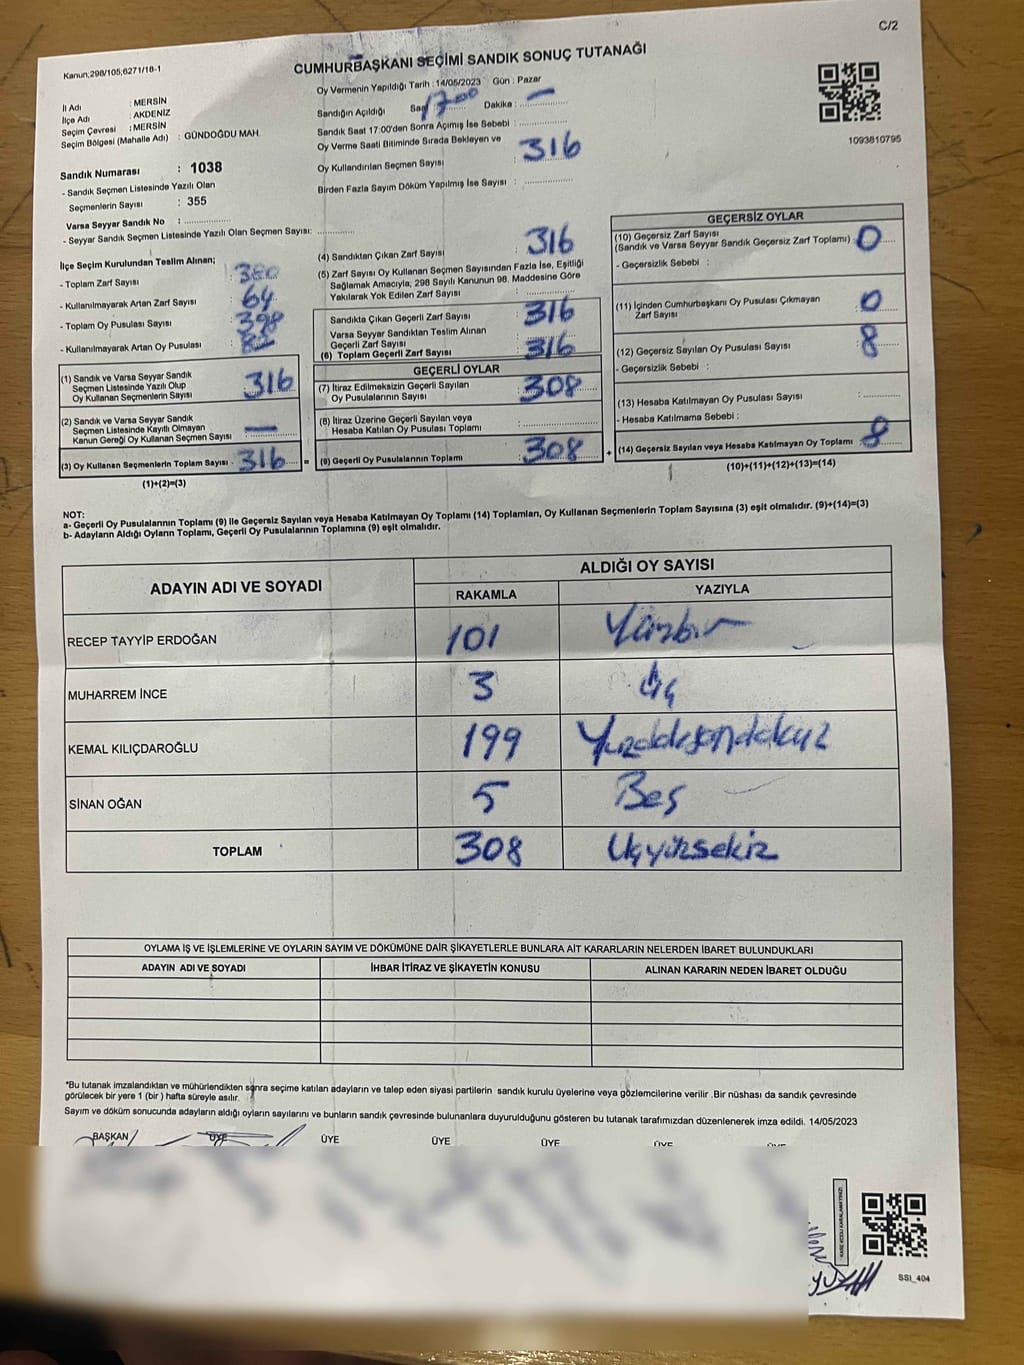 C/2
Kanun;298/105,6271/18-1
CUMHURBAŞKANI SEÇİMİ SANDIK SONUÇ TUTANAĞI
İl Adı : MERSİN
İlçe Adı : AKDENİZ
Seçim Çevresi : MERSİN
Seçim Bölgesi (Mahalle Adı) : GÜNDOĞDU MAH.
Sandık Numarası : 1038
- Sandık Seçmen Listesinde Yazılı Olan
Seçmenlerin Sayısı : 355
Varsa Seyyar Sandık No :
- Seyyar Sandık Seçmen Listesinde Yazılı Olan Seçmen Sayısı:
Oy Vermenin Yapıldığı Tarih : 14/05/2023 Gün : Pazar
Sandığın Açıldığı Saat 1700 Dakika : —
Sandık Saat 17:00'den Sonra Açımış İse Sebebi :
Oy Verme Saati Bitiminde Sırada Bekleyen ve
Oy Kullandırılan Seçmen Sayısı : 316
Birden Fazla Sayım Döküm Yapılmış İse Sayısı :
1093810795
İlçe Seçim Kurulundan Teslim Alınan;
- Toplam Zarf Sayısı : 380
- Kullanılmayarak Artan Zarf Sayısı : 64
- Toplam Oy Pusulası Sayısı : 398
- Kullanılmayarak Artan Oy Pusulası :
(1) Sandık ve Varsa Seyyar Sandık
Seçmen Listesinde Yazılı Olup
Oy Kullanan Seçmenlerin Sayısı : 316
(2) Sandık ve Varsa Seyyar Sandık
Seçmen Listesinde Kayıtlı Olmayan
Kanun Gereği Oy Kullanan Seçmen Sayısı : —
(3) Oy Kullanan Seçmenlerin Toplam Sayısı : 316 =
(1)+(2)=(3)
(4) Sandıktan Çıkan Zarf Sayısı : 316
(5) Zarf Sayısı Oy Kullanan Seçmen Sayısından Fazla İse, Eşitliği
Sağlamak Amacıyla; 298 Sayılı Kanunun 98. Maddesine Göre
Yakılarak Yok Edilen Zarf Sayısı :
Sandıkta Çıkan Geçerli Zarf Sayısı : 316
Varsa Seyyar Sandıktan Teslim Alınan
Geçerli Zarf Sayısı
(6) Toplam Geçerli Zarf Sayısı : 316
GEÇERLİ OYLAR
(7) İtiraz Edilmeksizin Geçerli Sayılan
Oy Pusulalarının Sayısı : 308
(8) İtiraz Üzerine Geçerli Sayılan veya
Hesaba Katılan Oy Pusulası Toplamı :
(9) Geçerli Oy Pusulalarının Toplamı : 308 +
GEÇERSİZ OYLAR
(10) Geçersiz Zarf Sayısı
(Sandık ve Varsa Seyyar Sandık Geçersiz Zarf Toplamı) : 0
- Geçersizlik Sebebi :
(11) İçinden Cumhurbaşkanı Oy Pusulası Çıkmayan
Zarf Sayısı : 0
(12) Geçersiz Sayılan Oy Pusulası Sayısı : 8
- Geçersizlik Sebebi :
(13) Hesaba Katılmayan Oy Pusulası Sayısı :
- Hesaba Katılmama Sebebi :
(14) Geçersiz Sayılan veya Hesaba Katılmayan Oy Toplamı : 8
(10)+(11)+(12)+(13)=(14)
NOT:
a- Geçerli Oy Pusulalarının Toplamı (9) ile Geçersiz Sayılan veya Hesaba Katılmayan Oy Toplamı (14) Toplamları, Oy Kullanan Seçmenlerin Toplam Sayısına (3) eşit olmalıdır. (9)+(14)=(3)
b- Adayların Aldığı Oyların Toplamı, Geçerli Oy Pusulalarının Toplamına (9) eşit olmalıdır.
ADAYIN ADI VE SOYADI ALDIĞI OY SAYISI
RAKAMLA YAZIYLA
RECEP TAYYİP ERDOĞAN 101 Yüzbir
MUHARREM İNCE 3 Üç
KEMAL KILIÇDAROĞLU 199 Yüzdoksandokuz
SİNAN OĞAN 5 Beş
TOPLAM 308 Üçyüzsekiz
OYLAMA İŞ VE İŞLEMLERİNE VE OYLARIN SAYIM VE DÖKÜMÜNE DAİR ŞİKAYETLERLE BUNLARA AİT KARARLARIN NELERDEN İBARET BULUNDUKLARI
ADAYIN ADI VE SOYADI İHBAR İTİRAZ VE ŞİKAYETİN KONUSU ALINAN KARARIN NEDEN İBARET OLDUĞU
*Bu tutanak imzalandıktan ve mühürlendikten sonra seçime katılan adayların ve talep eden siyasi partilerin sandık kurulu üyelerine veya gözlemcilerine verilir .Bir nüshası da sandık çevresinde
görülecek bir yere 1 (bir ) hafta süreyle asılır.
Sayım ve döküm sonucunda adayların aldığı oyların sayılarını ve bunların sandık çevresinde bulunanlara duyurulduğunu gösteren bu tutanak tarafımızdan düzenlenerek imza edildi. 14/05/2023
BAŞKAN ÜYE ÜYE ÜYE ÜYE ÜYE
SSI_404